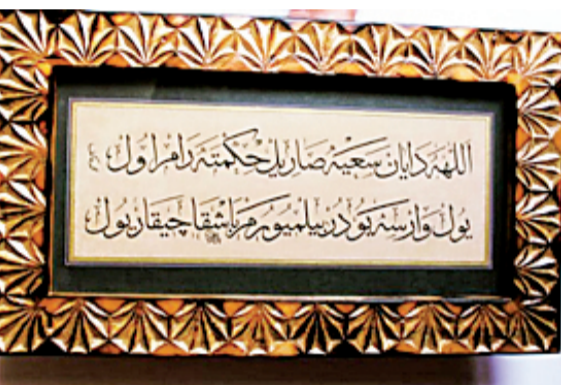 اللهه دایان سعیه صاریل حکمته رام اول
یول وارسه بودر بیلمیورم باشقا چیقار یول